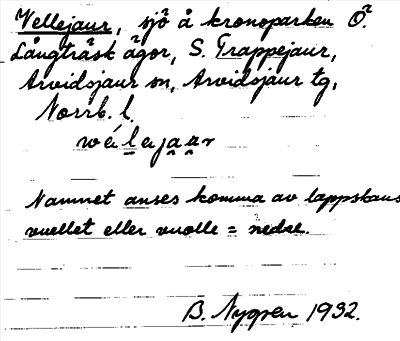 Vellejaur, sjö å kronoparken Ö.
Långträsk ägor, S. Trappejaur,
Arvidsjaur sn, Arvidsjaur tg,
Norrb. l.
wélajaar
Namnet anses komma av lappskans
vuellet eller vuolle = nedre.
B. Nygren 1932.